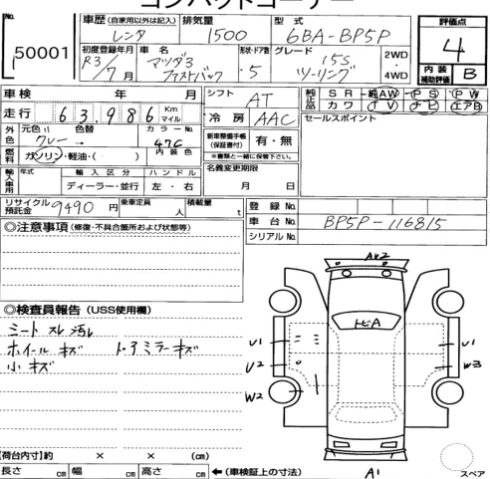 コンパクトコーナー
No.
50001
車歴 (自家用以外は記入)
レンタ
排気量
1500
型式
6BA-BP5P
評価点
4
初度登録年月
R3/7月
車名
マツダ3
ファストバック
形状・ドア数
5
グレード
15S
ツーリング
2WD
4WD
内装
補助評価
B
車検 年 月
シフト
AT
SR 純AW PS PW
カワ TV ナビ エアB
走行 63,986 Km
マイル
冷房 AAC
セールスポイント
外色 元色 色替
グレー
カラーNo.
47C
燃料 ガソリン・軽油・( )
内装色
新車整備手帳
(保証書付)
有・無
※書類と一緒に保管下さい。
輸入車用 年式
輸入区分
ディーラー・並行
ハンドル
左・右
名義変更期限
月 日
リサイクル
預託金 9490 円
乗車定員 人
積載量 t
登録No.
車台No. BP5P-116815
シリアルNo.
◎注意事項 (修復・不具合箇所および状態等)
◎検査員報告 (USS使用欄)
シートスレ汚レ
ホイールキズ ドアミラーキズ
小キズ
AW2
トビA
U1
U2
W2
U1
W3
A1
スペア
【荷台内寸】約 × × (cm)
長さ cm 幅 cm 高さ cm ←(車検証上の寸法)